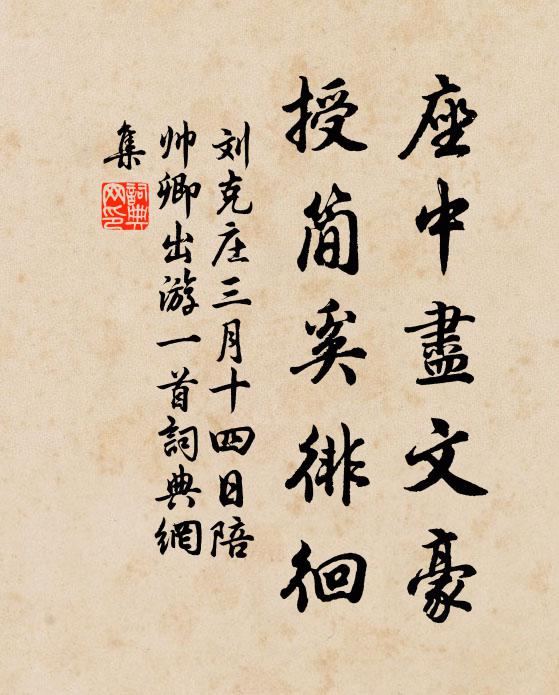 座中盡文豪
授简奚徘徊
刘克庄三月十四日陪
帅卿出游一首詞典網
集
詞典
网印